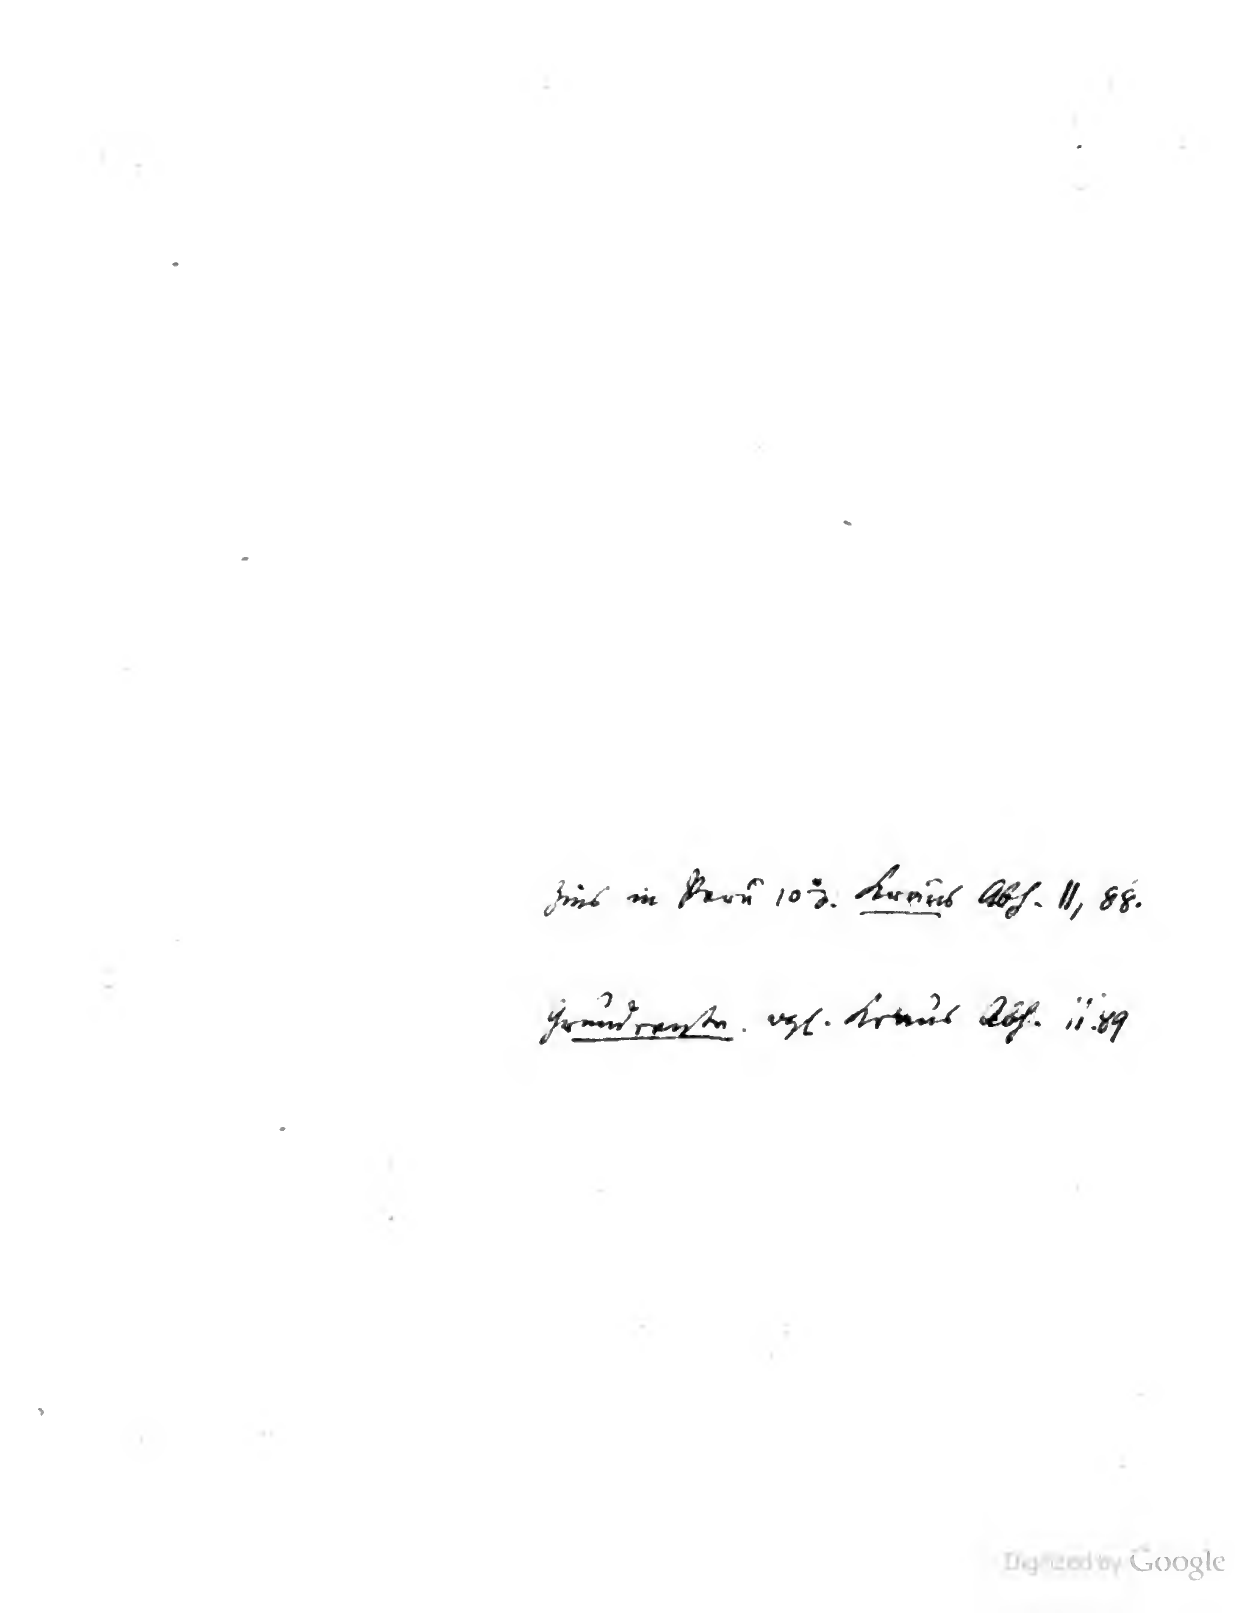 Zins in Peru 10%. Kraus Abh. II, 88.
Grundrente. vgl. Kraus Abh. II. 89
Digitized by Google